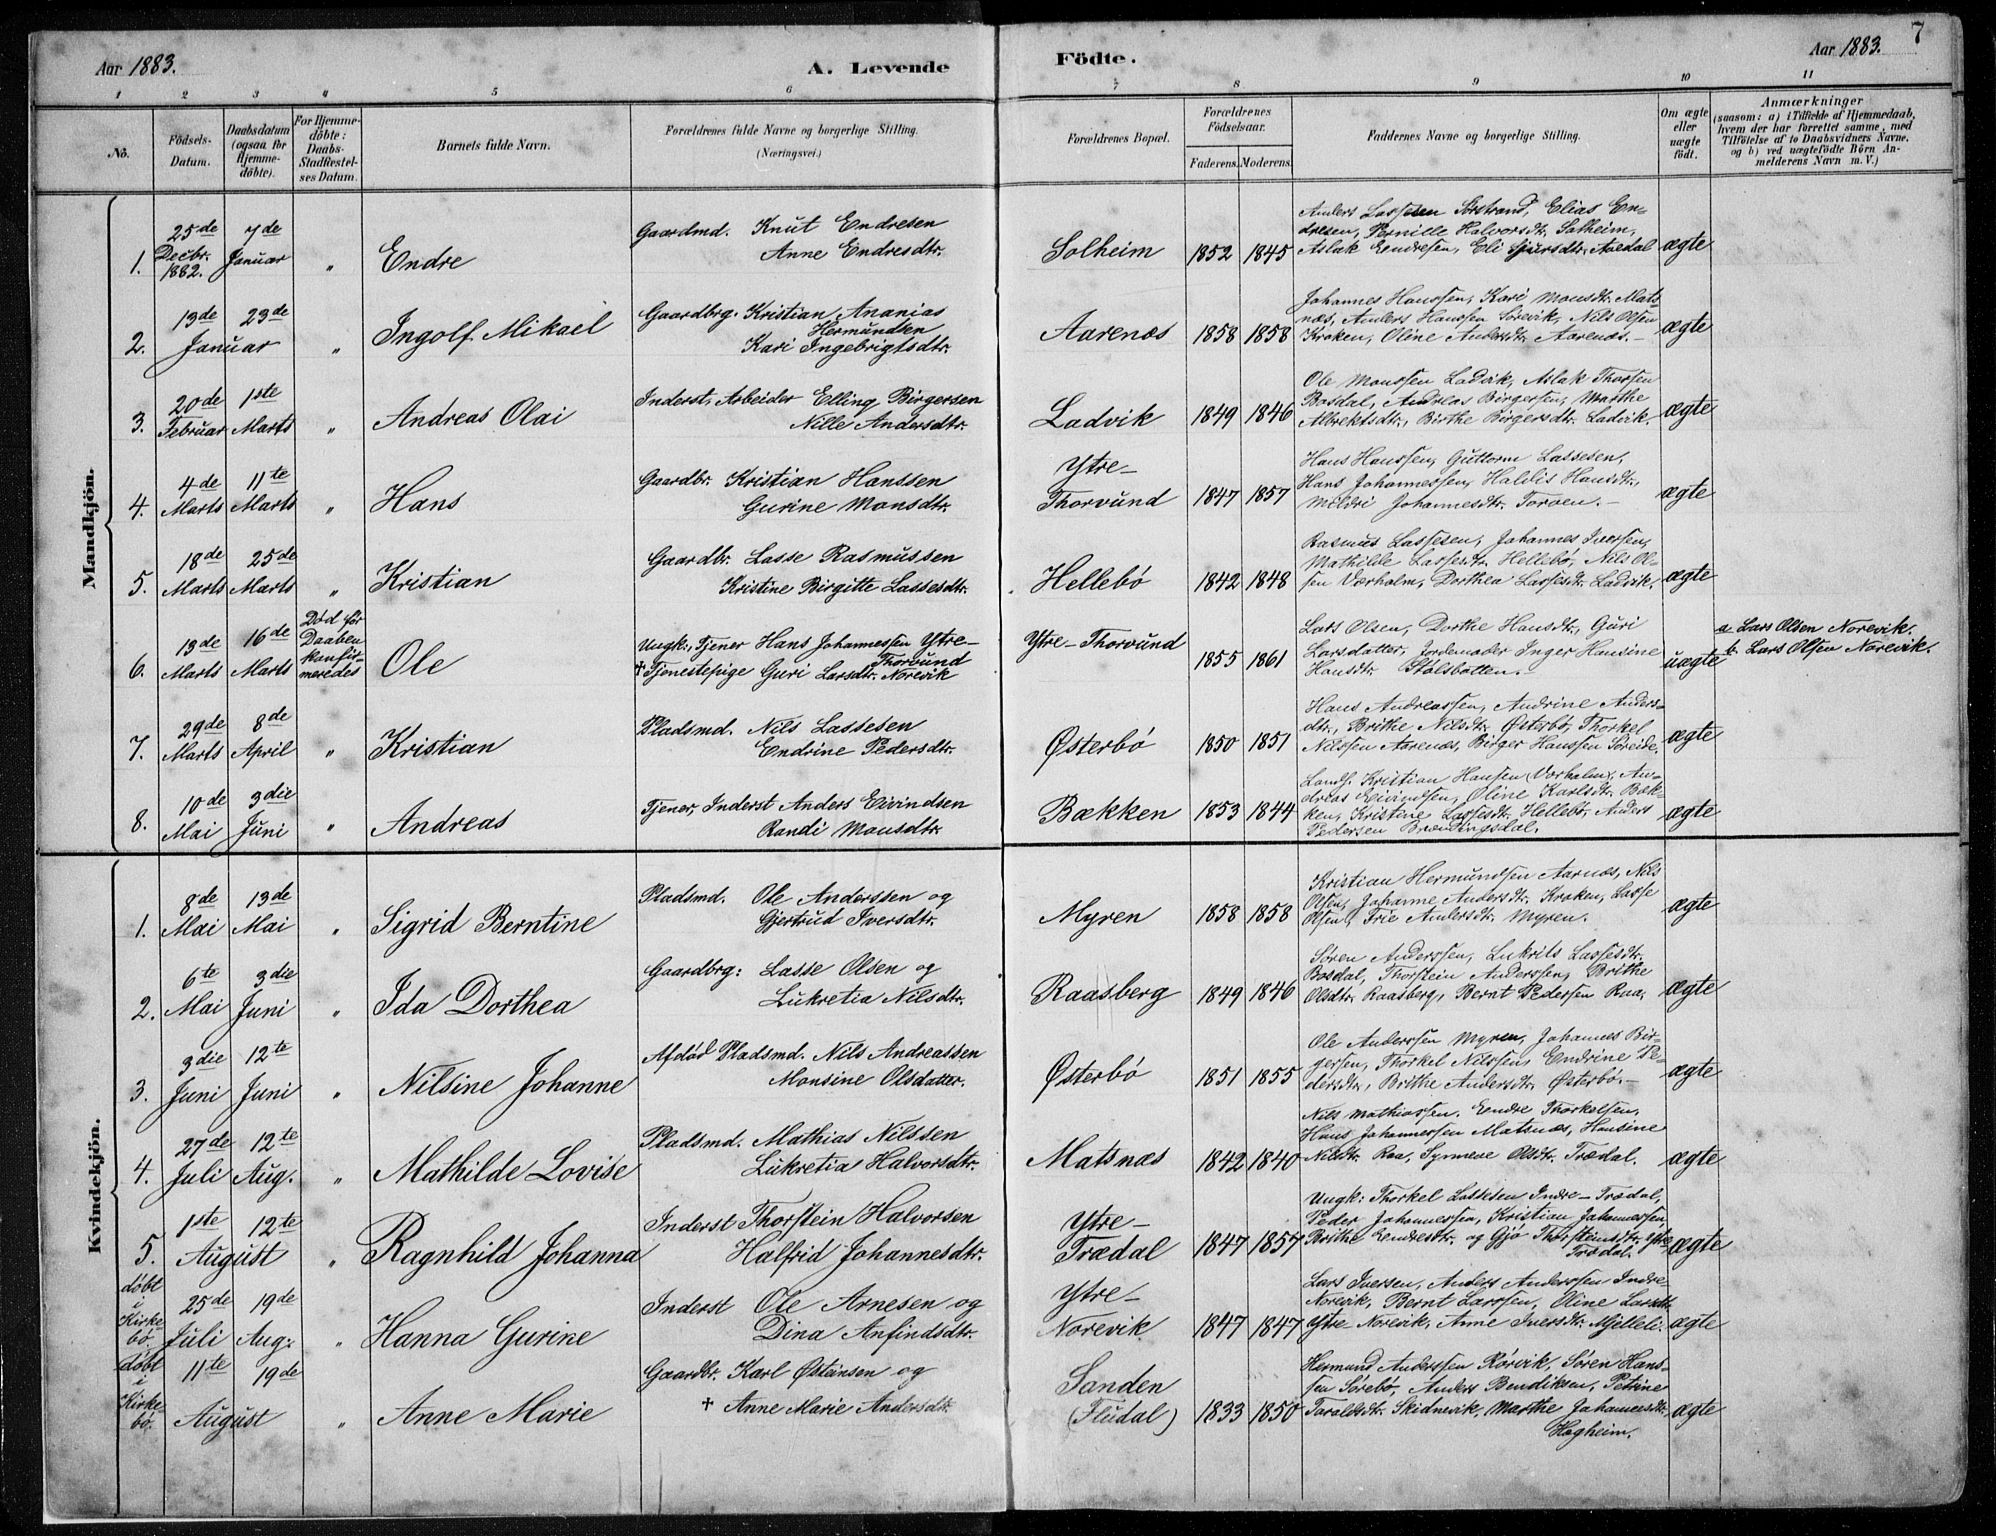 7
Aar 1883.
A. Levende
Födte.
Aar 1883.
1 2 3 4 5 6 7 8 9 10 11
No.
Födsels-
Datum.
Daabsdatum
(ogsaa for
Hjemme-
döbte).
For Hjemme-
döbte:
Daabs-
Stadfæstel-
ses Datum.
Barnets fulde Navn.
Forældrenes fulde Navne og borgerlige Stilling.
(Næringsvei.)
Forældrenes Bopæl.
Forældrenes
Födselsaar.
Faderens. Moderens.
Faddernes Navne og borgerlige Stilling.
Om ægte
eller
uægte
födt.
Anmærkninger
(saasom: a) i Tilfælde af Hjemmedaab,
hvem der har forrettet samme, med
Tilföielse af to Daabsvidners Navne.
og b) ved uægtefödte Börn An-
melderens Navn m. V.)
Mandkjön.
1.
25de
Decbr.
1882.
7de
Januar
"
Endre
Gaardmd. Knut Endresen
Anne Endresdtr.
Solheim
1852 1845
Anders Lassesen Sørstrand, Elias En-
dresen, Pernille Halvorsdt. Solheim,
Aslak Endresen, Eli Sjursdtr. Aaedal
ægte
2.
13de 23de
Januar
"
Ingolf Mikael
Gaardbrg. Kristian Ananias
Hermundsen
Kari Ingebrigtsdtr.
Aarenæs
1858 1858
Johannes Hanssen, Kari Monsdtr. Mats-
næs, Anders Hanssen Sørevik, Nils Olsen
Kraken, Oline Andersdtr. Aarenæs.-
ægte
3.
20de
Februar
1ste
Marts
"
Andreas Olai
Inderst, Arbeider Elling Birgersen
Nille Andersdtr.
Ladvik
1849 1846
Ole Monssen Ladvik, Aslak Thorsen
Bosdal, Andreas Birgersen, Marthe
Albrektsdtr., Birthe Birgersdtr. Ladvik.
ægte
4.
4de
Marts
11te
Marts
"
Hans
Gaardbr. Kristian Hanssen
Gurine Monsdtr.
Ytre-
Thorvund
1847 1857
Hans Hanssen, Guttorm Lassesen,
Hans Johannessen, Haldis Hansdtr.,
Mildri Johannesdtr. Torven.-
ægte
5.
18de
Marts
25de
Marts
"
Kristian
Gaardbr. Lasse Rasmussen
Kristine Birgitte Lassesdtr.
Hellebö
1842 1848
Rasmus Lassesen, Johannes Iversen,
Mathilde Lassesdtr. Hellebö, Nils Ol-
sen Værholm, Dorthea Larsesdtr. Ladvik.
ægte
6.
13de
Marts
16de
Marts
Død før
Daaben
konfir-
meredes
Ole
Ungk., Tjener Hans Johannessen Ytre-
Thorvund
Tjenestepige Guri Larsdtr. Norevik
Ytre-Thorvund
1855 1861
Lars Olsen, Dorthe Hansdtr., Guri
Larsdatter, Jordemoder Inger Hansine
Hansdtr. Stølsbotten.-
uægte
a. Lars Olsen Norevik.
b. Lars Olsen Norevik.
7.
29de
Marts
8de
April
"
Kristian
Pladsmd. Nils Lassesen
Endrine Pedersdtr.
Østerbö
1850 1851
Hans Andreassen, Andrine Anders-
dtr., Brithe Nilsdtr. Østerbö, Thorkel
Nilssen Aarenæs, Birger Hanssen Søreide.
ægte
8.
10de
Mai
3die
Juni
"
Andreas
Tjener, Inderst Anders Eivindsen
Randi Monsdtr.
Bækken
1853 1844
Landh. Kristian Hansen (Værholm), An-
dreas Eivindsen, Oline Karlsdtr. Bæk-
ken, Kristine Lassesdt. Hellebö, Anders
Pedersen Brændingsdal.
ægte
Kvindekjön.
1.
8de
Mai
13de
Mai
"
Sigrid Berntine
Pladsmd. Ole Anderssen og
Gjertrud Iversdtr.
Myren
1858 1858
Kristian Hermundsen Aarnæs, Nils
Olsen, Johanne Andersdt. Kraken, Lasse
Olsen, Frie Andersdt. Myren.
ægte
2.
6te
Mai
3die
Juni
"
Ida Dorthea
Gaardbrg: Lasse Olsen og
Lukretia Nilsdtr.
Raasberg
1849 1846
Søren Anderssen, Lukrits Lassesdt.
Bosdal, Thorstein Anderssen, Brithe
Olsdtr. Raasberg, Bernt Pedersen Raa,
ægte
3.
3die
Juni
12te
Juni
"
Nilsine Johanne
Afdød Pladsmd. Nils Andreassen
Monsine Olsdatter.
Østerbö
1851 1855
Ole Anderssen Myren, Johannes Bir-
gersen, Thorkel Nilssen, Endrine Pe-
dersdt., Brithe Andersdt. Østerbö.-
ægte
4.
27de
Juli
12te
Aug.
"
Mathilde Lovise
Pladsmd. Mathias Nilssen
Lukretia Halvorsdtr.
Matsnæs
1842 1840
Nils Mathiassen, Endre Thorkelsen,
Hans Johannessen Matsnæs, Hansine
Nilsdtr. Raa, Synneve Olsdt. Trædal.
ægte
5.
1ste 12te
August
"
Ragnhild Johanna
Inderst Thorstein Halvorsen
Halfrid Johannesdtr.
Ytre-
Trædal
1847 1857
Ungk: Thorkel Lassesen Indre-Trædal,
Peder Johannessen, Kristian Johannessen,
Brithe Endresdtr. og Gjø Thorsteinsdt. Ytre-
Trædal.
ægte
döbt
i
Kirke-
bø.
25de
Juli
19de
Aug:
"
Hanna Gurine
Inderst Ole Arnesen og
Dina Anfindsdtr.
Ytre-
Norevik
1847 1847
Lars Iversen, Anders Anderssen Indre
Norevik, Bernt Larssen, Oline Larsdt.
Ytre-Norevik, Anne Iversdt. Mjelleli.
ægte
döbt
i
Kirke
bø.
11te 19de
August
"
Anne Marie
Gaardbr. Karl Østensen og
† Anne Marie Andersdt.
Sanden
(Fludal)
1833 1850
Hermund Anderssen Rörvik, Søren Hans-
sen Sørebö, Anders Bendiksen, Petrine
Taraldsdt. Skidnevik, Marthe Johannesdt.
Høgheim.
ægte